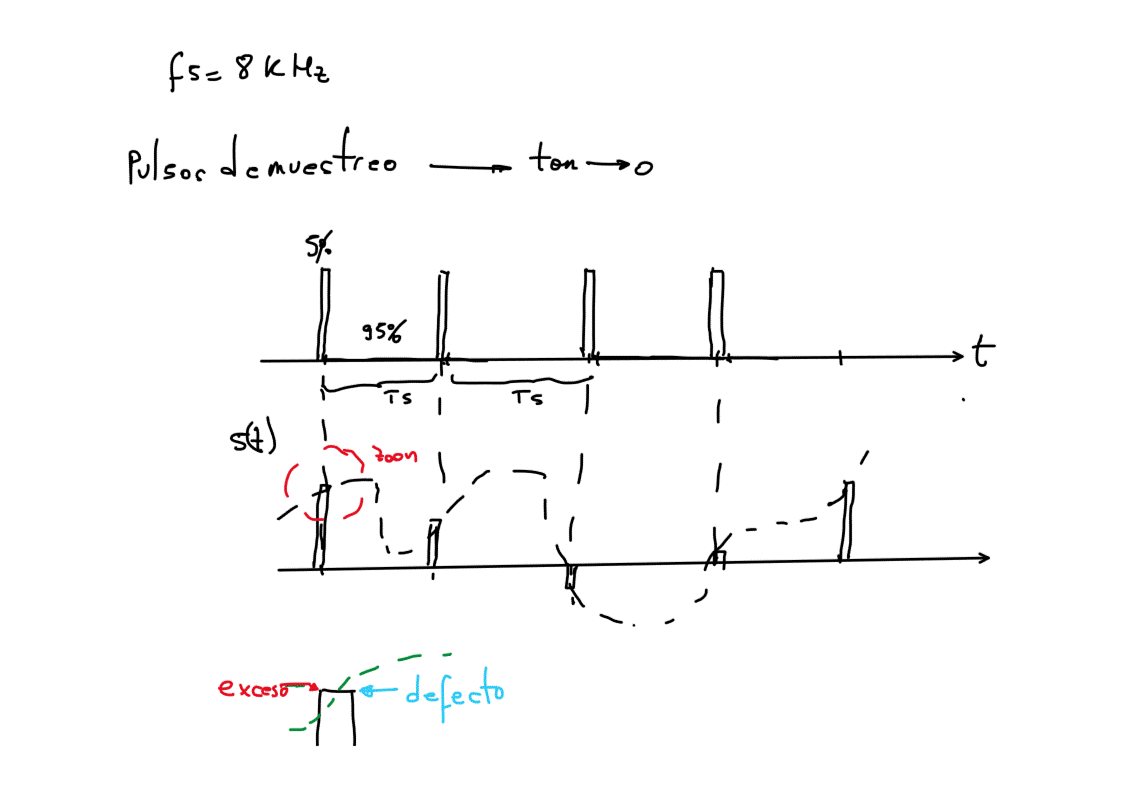 fs= 8 KHz
Pulsos de muestreo → ton → 0
5%
95%
t
Ts Ts
s(t)
zoon
exceso defecto